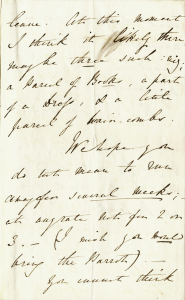 leave. At this moment
I think it likely there
maybe three such: viz;
a Parcel of Books, a part
of a Dress, & a little
parcel of hair-combs.
We hope you
do not mean to run
away for several weeks;
at any rate not for 2 or
3. — (I wish you would
bring the Parrots). —
You cannot think